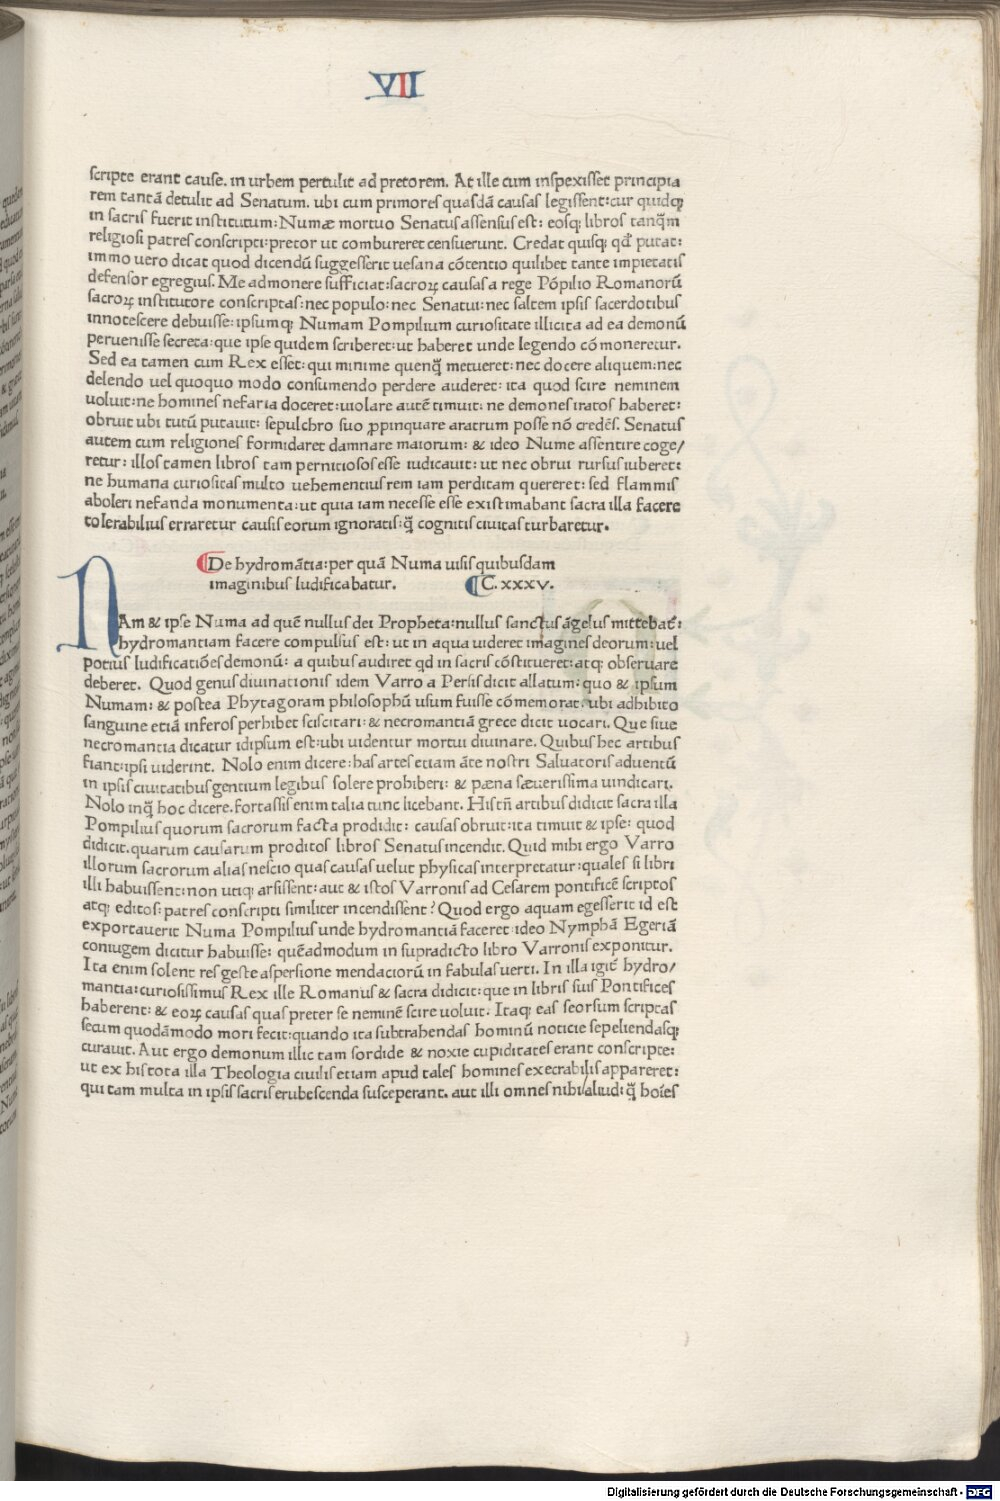 VII
scripte erant cause. in urbem pertulit ad pretorem. At ille cum inspexisset principia
rem tantā detulit ad Senatum. ubi cum primores quasdā causas legissent: cur quidq;
in sacris fuerit institutum: Numæ mortuo Senatus assensus est: eosq; libros tanq̄m
religiosi patres conscripti: pretor ut combureret censuerunt. Credat quisq; qđ putat:
immo uero dicat quod dicendū suggesserit uesana cōtentio quilibet tante impietatis
defensor egregius. Me admonere sufficiat: sacroꝝ causas a rege Pōpilio Romanorū
sacroꝝ institutore conscriptas: nec populo: nec Senatui: nec saltem ipsis sacerdotibus
innotescere debuisse: ipsumq; Numam Pompilium curiositate illicita ad ea demonū
peruenisse secreta: que ipse quidem scriberet: ut haberet unde legendo cōmoneretur.
Sed ea tamen cum Rex esset: qui minime quenq̄ metueret: nec docere aliquem: nec
delendo uel quoquo modo consumendo perdere auderet: ita quod scire neminem
uoluit: ne homines nefaria doceret: uiolare autē timuit: ne demones iratos haberet:
obruit ubi tutū putauit: sepulchro suo ꝓpinquare aratrum posse nō credēs. Senatus
autem cum religiones formidaret damnare maiorum: & ideo Nume assentire coge/
retur: illos tamen libros tam perniciosos esse iudicauit: ut nec obrui rursus iuberet:
ne humana curiositas multo uehementius rem iam perditam quereret: sed flammis
aboleri nefanda monumenta: ut quia iam necesse esse existimabant sacra illa facere
tolerabilius erraretur causis eorum ignoratis: q̄ cognitis ciuitas turbaretur.
¶De hydromātia: per quā Numa uisis quibusdam
imaginibus ludificabatur. ¶C. xxxv.
NAm & ipse Numa ad quē nullus dei Propheta: nullus sanctus āgelus mittebat̄:
hydromantiam facere compulsus est: ut in aqua uideret imagines deorum: uel
potius ludificatiōes demonū: a quibus audiret qd in sacris cōstitueret: atq; obseruare
deberet. Quod genus diuinationis idem Varro a Persis dicit allatum: quo & ipsum
Numam: & postea Phytagoram philosophū usum fuisse cōmemorat. ubi adhibito
sanguine etiā inferos perhibet sciscitari: & necromantiā grece dicit uocari. Que siue
necromantia dicatur idipsum est: ubi uidentur mortui diuinare. Quibus hec artibus
fiant: ipsi uiderint. Nolo enim dicere: has artes etiam āte nostri Saluatoris aduentū
in ipsis ciuitatibus gentium legibus solere prohiberi: & pæna sæuerissima uindicari.
Nolo inq̄ hoc dicere. fortassis enim talia tunc licebant. His tn̄ artibus didicit sacra illa
Pompilius quorum sacrorum facta prodidit: causas obruit: ita timuit & ipse: quod
didicit. quarum causarum proditos libros Senatus incendit. Quid mihi ergo Varro
illorum sacrorum alias nescio quas causas uelut physicas interpretatur: quales si libri
illi habuissent: non utiq; arsissent: aut & istos Varronis ad Cesarem pontificē scriptos
atq; editos: patres conscripti similiter incendissent? Quod ergo aquam egesserit id est
exportauerit Numa Pompilius unde hydromantiā faceret. ideo Nymphā Egeriā
coniugem dicitur habuisse: quēadmodum in supradicto libro Varronis exponitur.
Ita enim solent res geste aspersione mendaciorū in fabulas uerti. In illa igit̄ hydro/
mantia: curiosissimus Rex ille Romanus & sacra didicit: que in libris suis Pontifices
haberent: & eoꝝ causas quas preter se neminē scire uoluit. Itaq; eas seorsum scriptas
secum quodāmodo mori fecit: quando ita subtrahendas hominū noticie sepeliendasq;
curauit. Aut ergo demonum illic tam sordide & noxie cupiditates erant conscripte:
ut ex his tota illa Theologia ciuilis etiam apud tales homines execrabilis appareret:
qui tam multa in ipsis sacris erubescenda susceperant. aut illi omnes nihil aliud: q̄ hoīes
Digitalisierung gefördert durch die Deutsche Forschungsgemeinschaft - DFG